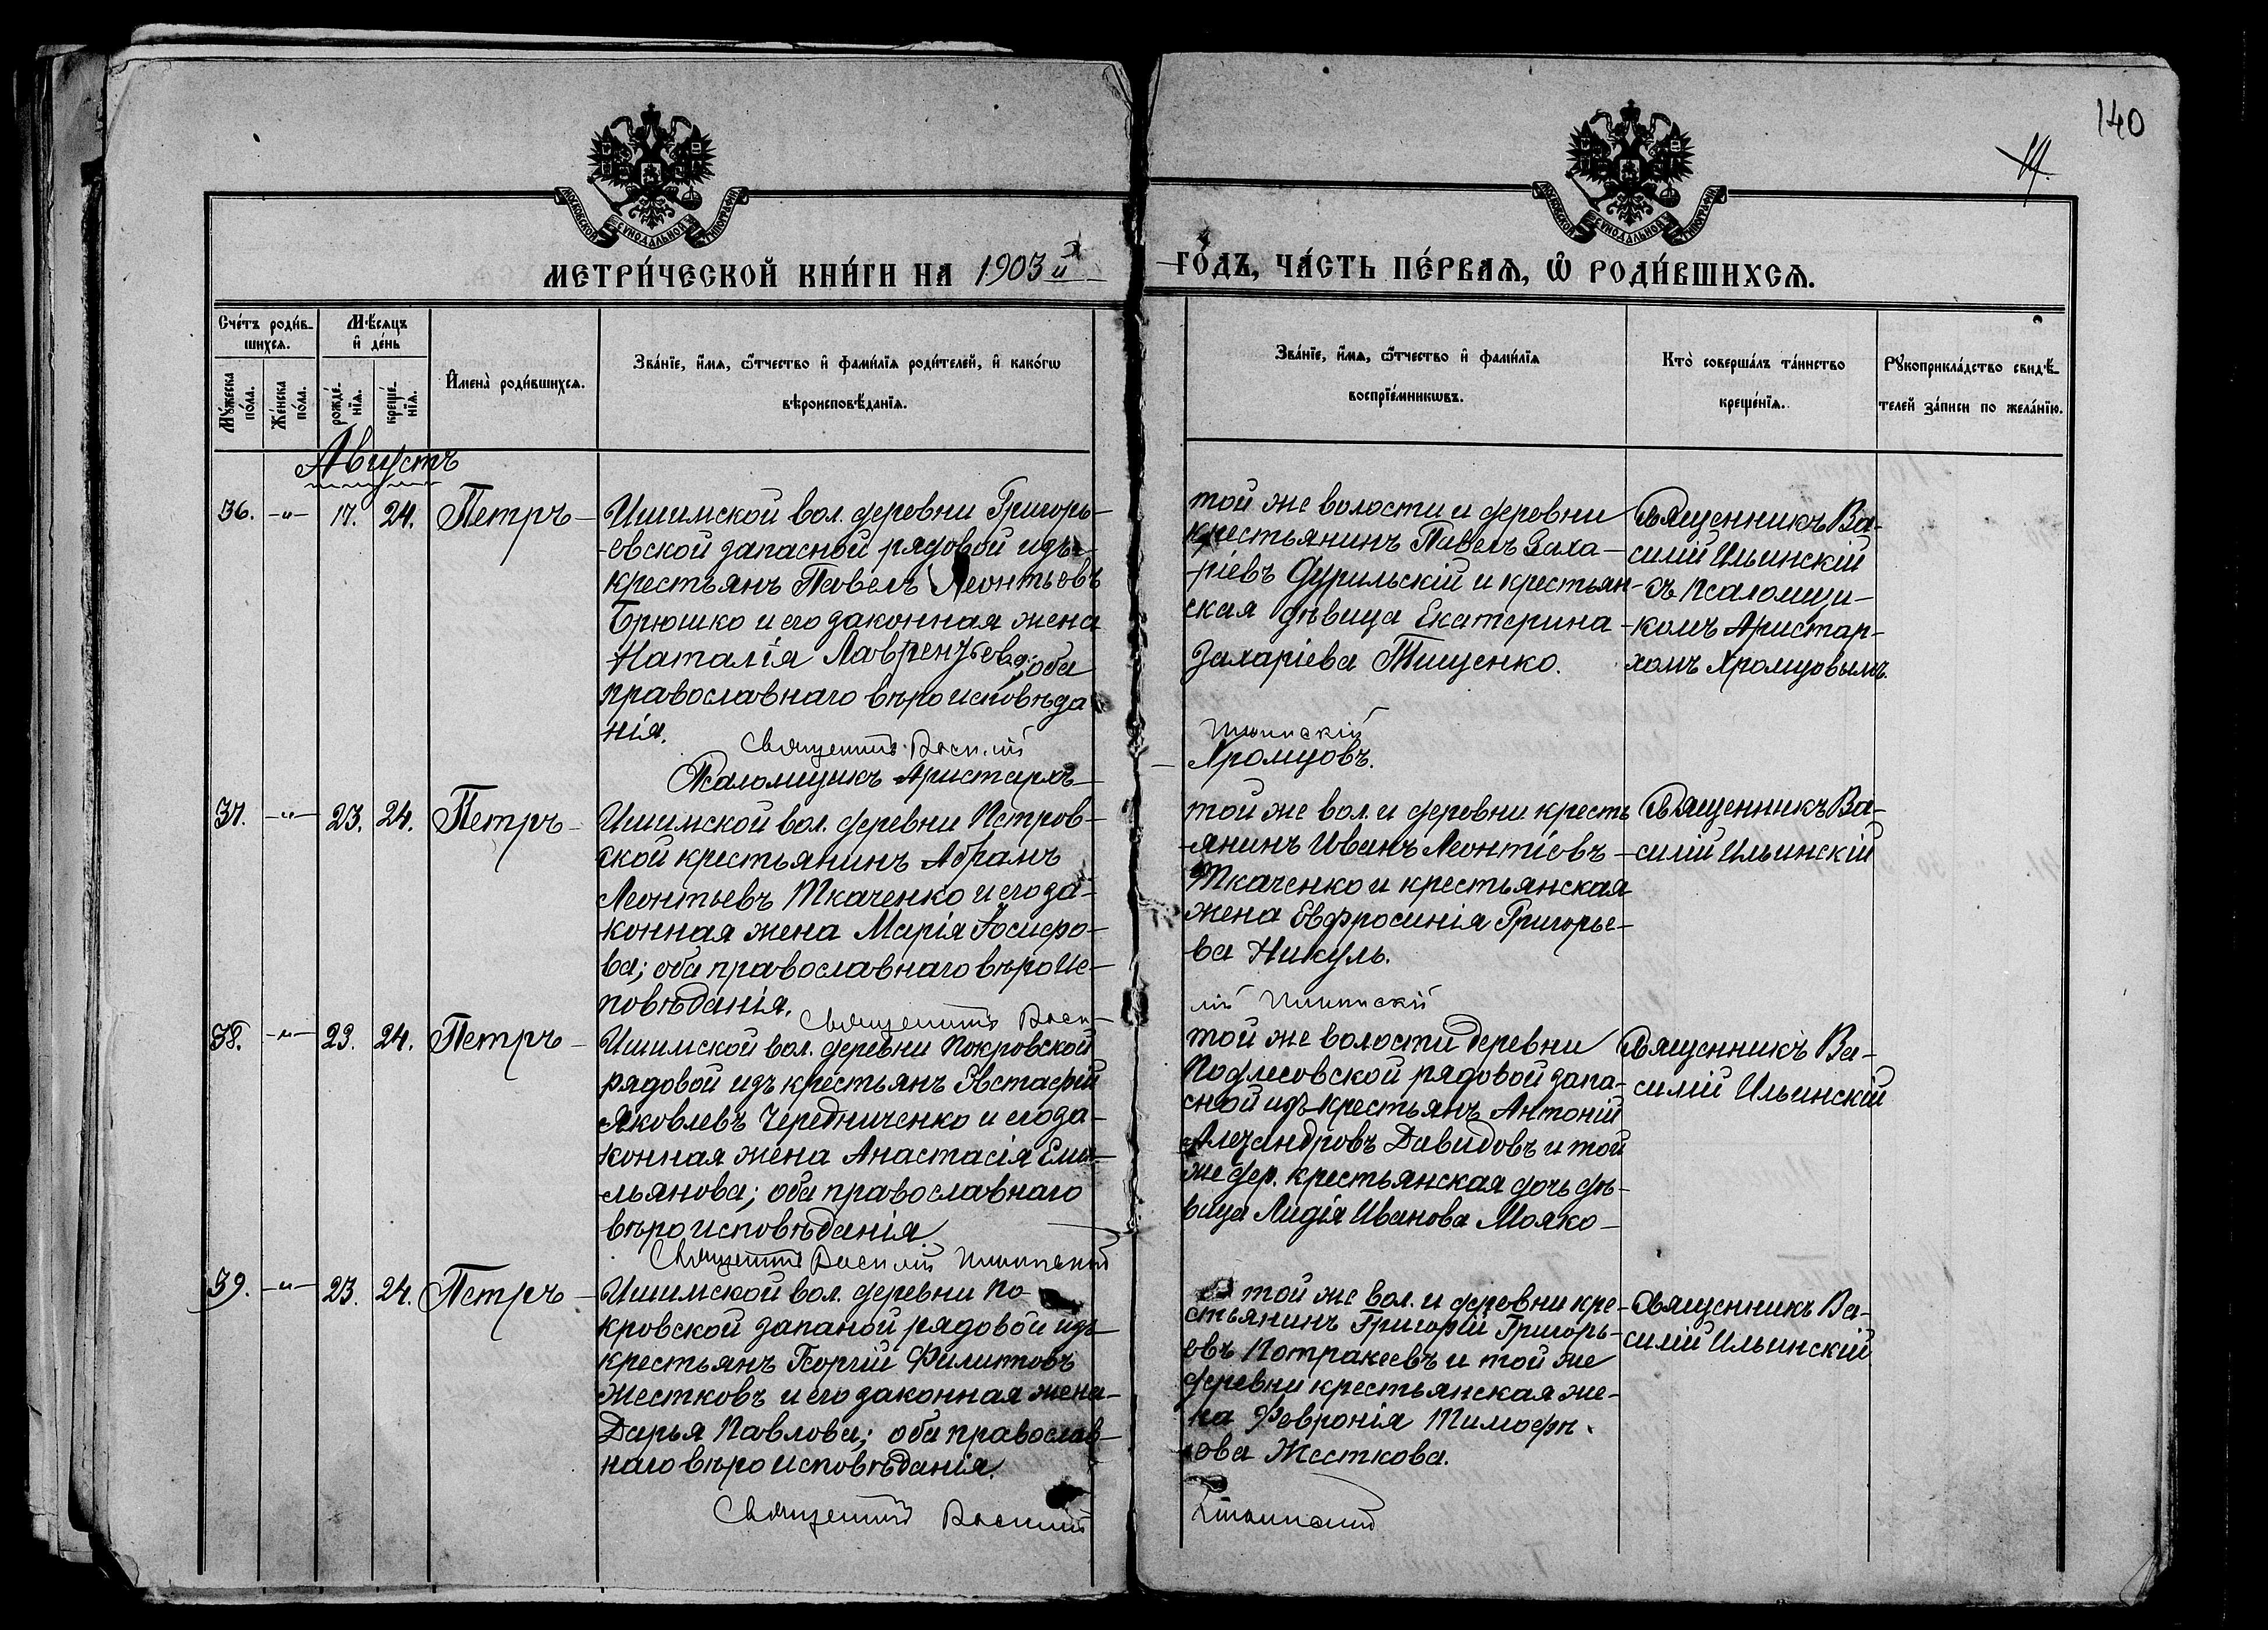 140
14.
МОСКОВСКОЙ СѴНОДАЛЬНОЙ ТИПОГРАФІИ
МОСКОВСКОЙ СѴНОДАЛЬНОЙ ТИПОГРАФІИ
МЕТРИ́ЧЕСКОЙ КНИ́ГИ НА 1903 й
ГО́ДЪ, ЧА́СТЬ ПЕ́РВАѦ, Ѡ҆ РОДИ́ВШИХСѦ.
Сче́тъ роди́в-
шихсѧ.
Мѣ́сѧцъ
и҆ де́нь
Мꙋ́жеска
по́ла.
Же́нска
по́ла.
рожде́-
нїѧ.
креще́-
нїѧ.
И҆мена̀ роди́вшихсѧ.
Зва́нїе, и҆́мѧ, ѻ҆́тчество и҆ фами́лїѧ роди́телей, и҆ како́гѡ
вѣроисповѣ́данїѧ.
Зва́нїе, и҆́мѧ, ѻ҆́тчество и҆ фами́лїѧ
воспрїе́мникѡвъ.
Кто̀ соверша́лъ та́инство
креще́нїѧ.
Рꙋкоприкла́дство свидѣ́-
телей за́писи по жела́нїю.
Августъ
36. -"- 17. 24. Петръ-
Ишимской вол. деревни Григорь-
-евской запасной рядовой изъ-
крестьянъ Павелъ Леонтьевъ
Брюшко и его законная жена
Наталія Лаврентьева; оба
православнаго вѣроисповѣда
нія.
Священникъ Василій
Псаломщикъ Аристархъ-
той же волости и деревни
крестьянинъ Павелъ Заха-
-ріевъ Дурильскій и крестьян-
ская дѣвица Екатерина
Захаріева Тищенко.
Ильинскій
Хромцовъ.
Священникъ Ва-
силій Ильинскій
съ псаломщи-
комъ Аристар-
хомъ Хромцовымъ.
37. -"- 23. 24. Петръ-
Ишимской вол. деревни Петров-
ской крестьянинъ Абрамъ
Леонтьевъ Ткаченко и его за-
конная жена Марія Іосифо-
ва; оба православнаго вѣроис-
повѣданія.
Священникъ Васи-
той же вол. и деревни кресть
-янинъ Иванъ Леонтіевъ-
Ткаченко и крестьянская
жена Евфросинія Григорье-
ва Никуль.
лій Ильинскій
Священникъ Ва-
силій Ильинскій
38. -"- 23. 24. Петръ-
Ишимской вол. деревни Покровской
рядовой изъ крестьянъ Евстафій
Яковлевъ Чередниченко и его за-
конная жена Анастасія Еми-
льянова; оба православнаго
вѣроисповѣданія
Священникъ Василій Ильинскій
той же волости деревни
Подлесовской рядовой запа-
сной изъ крестьянъ Антоній
Александровъ Давидовъ и той
же дер. крестьянская дочь дѣ-
вица Лидія Иванова Мояко-
Священникъ Ва-
силій Ильинскій
39. -"- 23. 24. Петръ-
Ишимской вол. деревни По
кровской запаной рядовой изъ
крестьянъ Георгій Филиповъ
Жестковъ и его законная жена-
Дарья Павлова; оба православ-
наго вѣроисповѣданія.
Священникъ Василій
той же вол. и деревни кре-
стьянинъ Григорій Григорь-
евъ Потракеевъ и той же
деревни крестьянская же-
на Февронія Тимофѣ-
ева Жесткова.
Ильинскій
Священникъ Ва-
силій Ильинскій